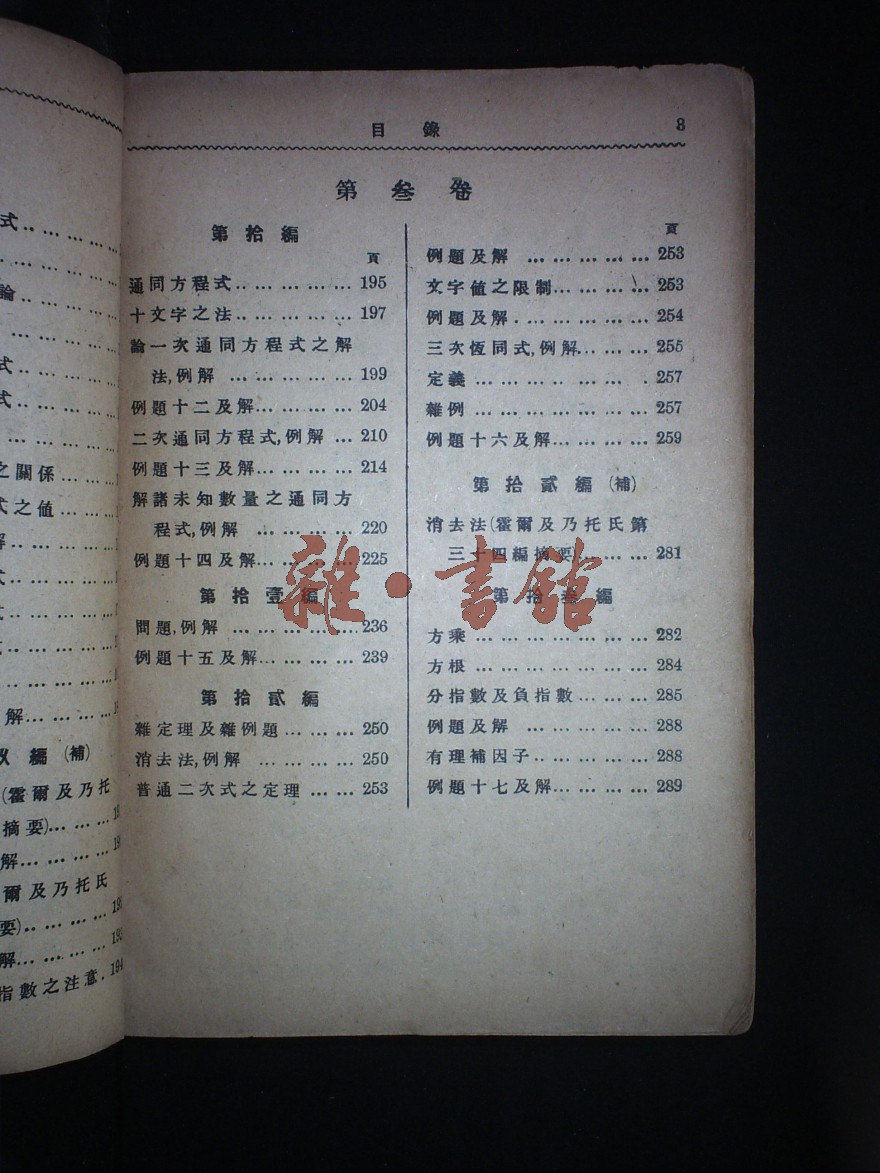 式‥ … … … …
論‥ … … …
式… …
式‥ … … …
之關係…
式之值…
解‥ … … …
解… … … …
編 (補)
(霍爾及乃托
摘要)… … …
解… … … …
爾及乃托氏
要)‥ … … …
解… … … … 193
指數之注意. 194
目錄 3
第叁卷
第拾編
頁
通同方程式‥ … … … … 195
十文字之法… … … … … 197
論一次通同方程式之解
法,例解 … … … … 199
例題十二及解… … … … 204
二次通同方程式,例解 … 210
例題十三及解… … … … 214
解諸未知數量之通同方
程式,例解 … … … … 220
例題十四及解… … … … 225
第拾壹編
問題,例解 … … … … … 236
例題十五及解… … … … 239
第拾貳編
雜定理及雜例題… … … 250
消去法,例解 … … … … 250
普通二次式之定理 … … 253
頁
例題及解 … … … … … 253
文字值之限制… … … … 253
例題及解 . … … … … … 254
三次恆同式,例解… … … 255
定義 … … … … … . 257
雜例 … … … … … … 257
例題十六及解… … … … 259
第拾貳編(補)
消去法(霍爾及乃托氏第
三十四編摘要)… … … 281
第拾叁編
方乘 … … … … … … 282
方根 … … … … … … 284
分指數及負指數… … … 285
例題及解 … … … … … 288
有理補因子‥ … … … … 288
例題十七及解… … … … 289
雜·書館